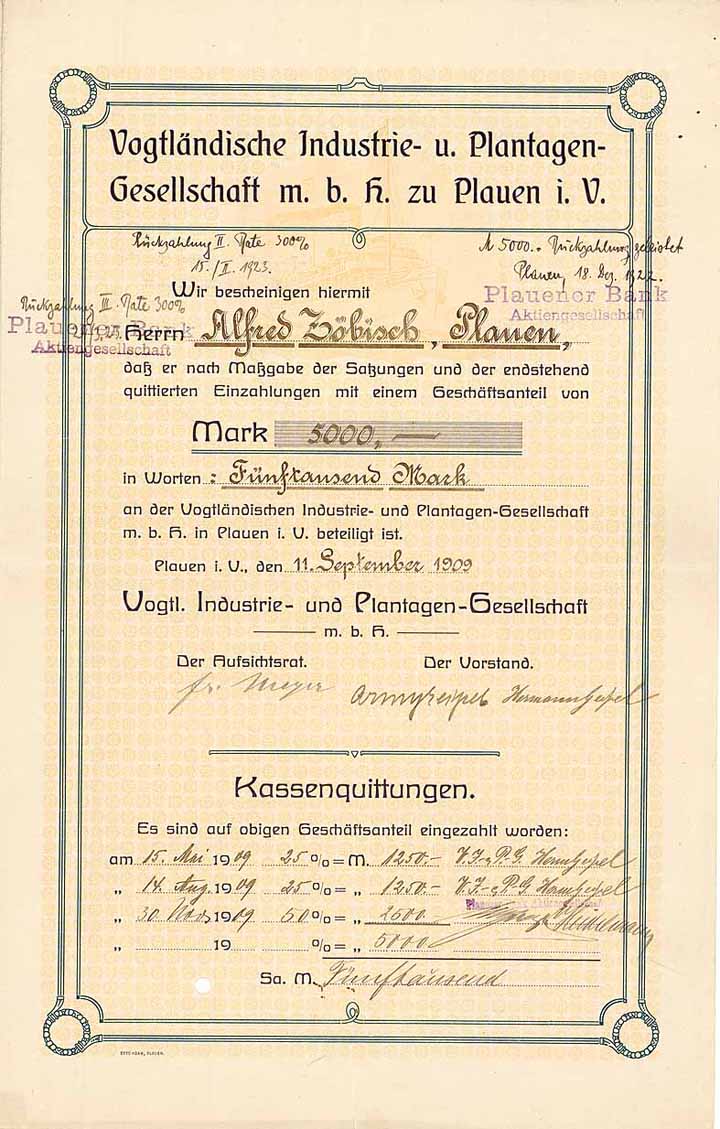 Vogtländische Industrie- u. Plantagen-
Gesellschaft m. b. H. zu Plauen i. V.
Rückzahlung II. Rate 300%
15./II. 1923.
M 5000.- Rückzahlung geleistet
Plauen, 18. Dez. 1922.
Plauener Bank
Aktiengesellschaft
Rückzahlung III. Rate 300%
Plauener Bank
Aktiengesellschaft
Wir bescheinigen hiermit
Herrn Alfred Zöbisch, Plauen,
daß er nach Maßgabe der Satzungen und der endstehend
quittierten Einzahlungen mit einem Geschäftsanteil von
Mark 5000,—
in Worten: Fünftausend Mark
an der Vogtländischen Industrie- und Plantagen-Gesellschaft
m. b. H. in Plauen i. V. beteiligt ist.
Plauen i. V., den 11. September 1909
Vogtl. Industrie- und Plantagen-Gesellschaft
m. b. H.
Der Aufsichtsrat. Der Vorstand.
Kassenquittungen.
Es sind auf obigen Geschäftsanteil eingezahlt worden:
am 15. Mai 1909 25 % = M. 1250.- V. I.- & P.-G.
„ 14. Aug. 1909 25 % = „ 1250.- V. I.- & P.-G
„ 30 Nov. 1909 50 % = „ 2500.- Plauener Bank Aktiengesellschaft
„ 19 % = „ 5000
Sa. M. Fünftausend